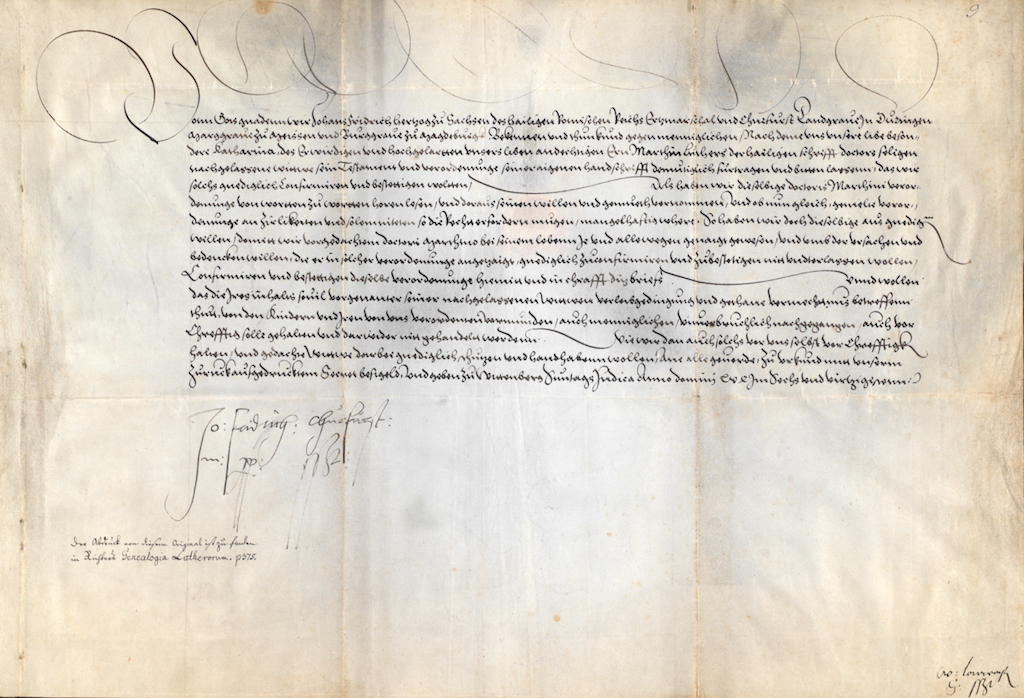 9
Vonn Gots gnadenn wir Johans Fridrich hertzog zu Sachssen des heiligen Romischen Reichs Ertzmarschal und Churfürst Landgraue In Duringen
Marggraue zu Meissen und Burggraue zu Magdeburgk Bekennen und thun kund gegen menniglichen / Nach deme uns unsere libe beson-
dere Katharina, des Erwirdigen und hochgelarten unsers liben andechtigen Ern Marthin Luthers der hailigen schrifft doctors seligen
nachgelassene witwe sein Testament und verordenunge seiner aigenen handschrifft demutiglich furtragen und bitten lassenn, das wir
solchs gnediglich Confirmiren und bestettigen wolten / Als haben wir dieselbige doctoris Marthini veror-
denunge von worten zu worten horen lesen / und daraus seinen willen und gemuth vernommen, Und ob nun gleich, gemelte veror-
denunge an zirlikeiten und solemniteten so die Recht erfordern mugen / mangelhafftig where. So haben wir doch dieselbige aus gnedigem
willen / domit wir vorgedachtem doctori Marthino bei seinem lebenn Je und allewegen genaigt gewesen / und umb der ursachen und
bedencken willen, die er in solcher verordenunge angezaigt, gnediglich zu confirmiren und zubestetigen nit underlassen wollen /
Confirmiren und bestettigen dieselbe verordenunge hiemit und in chrafft dits briefs Unnd wollen
das die Ires inhalts souil vorgenanter seiner nachgelassenen witwen verleibgedingung und gethane vermechtnus betreffenn
thut, von den Kindern und Iren von uns verordenten vormunden / auch menniglichen, unuerbruchlich nachgegangen, auch vor
Chreffftig solle gehalten und darwider nit gehandelt werdenn. Wie wir dan auch solchs vor uns selbst vor Chreffftigk
halten / und gedachte witwe darbei gnediglich, schutzen und handhabenn wollen / Ane alle geuerde / Zu urkund mit unserm
Zuruckaufgedrucktem Secret besigelt, Und geben zu Wittenberg Suntags Judica Anno domini xv c Im Sechs und virtzigistenn
Jo: Fridrich: Churfurst:
m: pp: sszt
Der Abdruck von diesem Original ist zu finden
in Richters Genealogia Lutherorum. p 375.